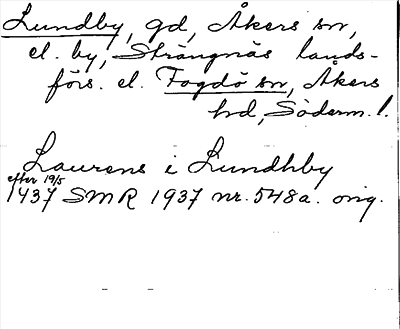 Lundby, gd, Åkers sn,
el. by, Strängnäs lands-
förs. el. Fogdö sn, Åkers
hd, Söderm. l.
Laurens i Lundhby
efter 19/5
1437 SMR 1937 nr. 548a. orig.